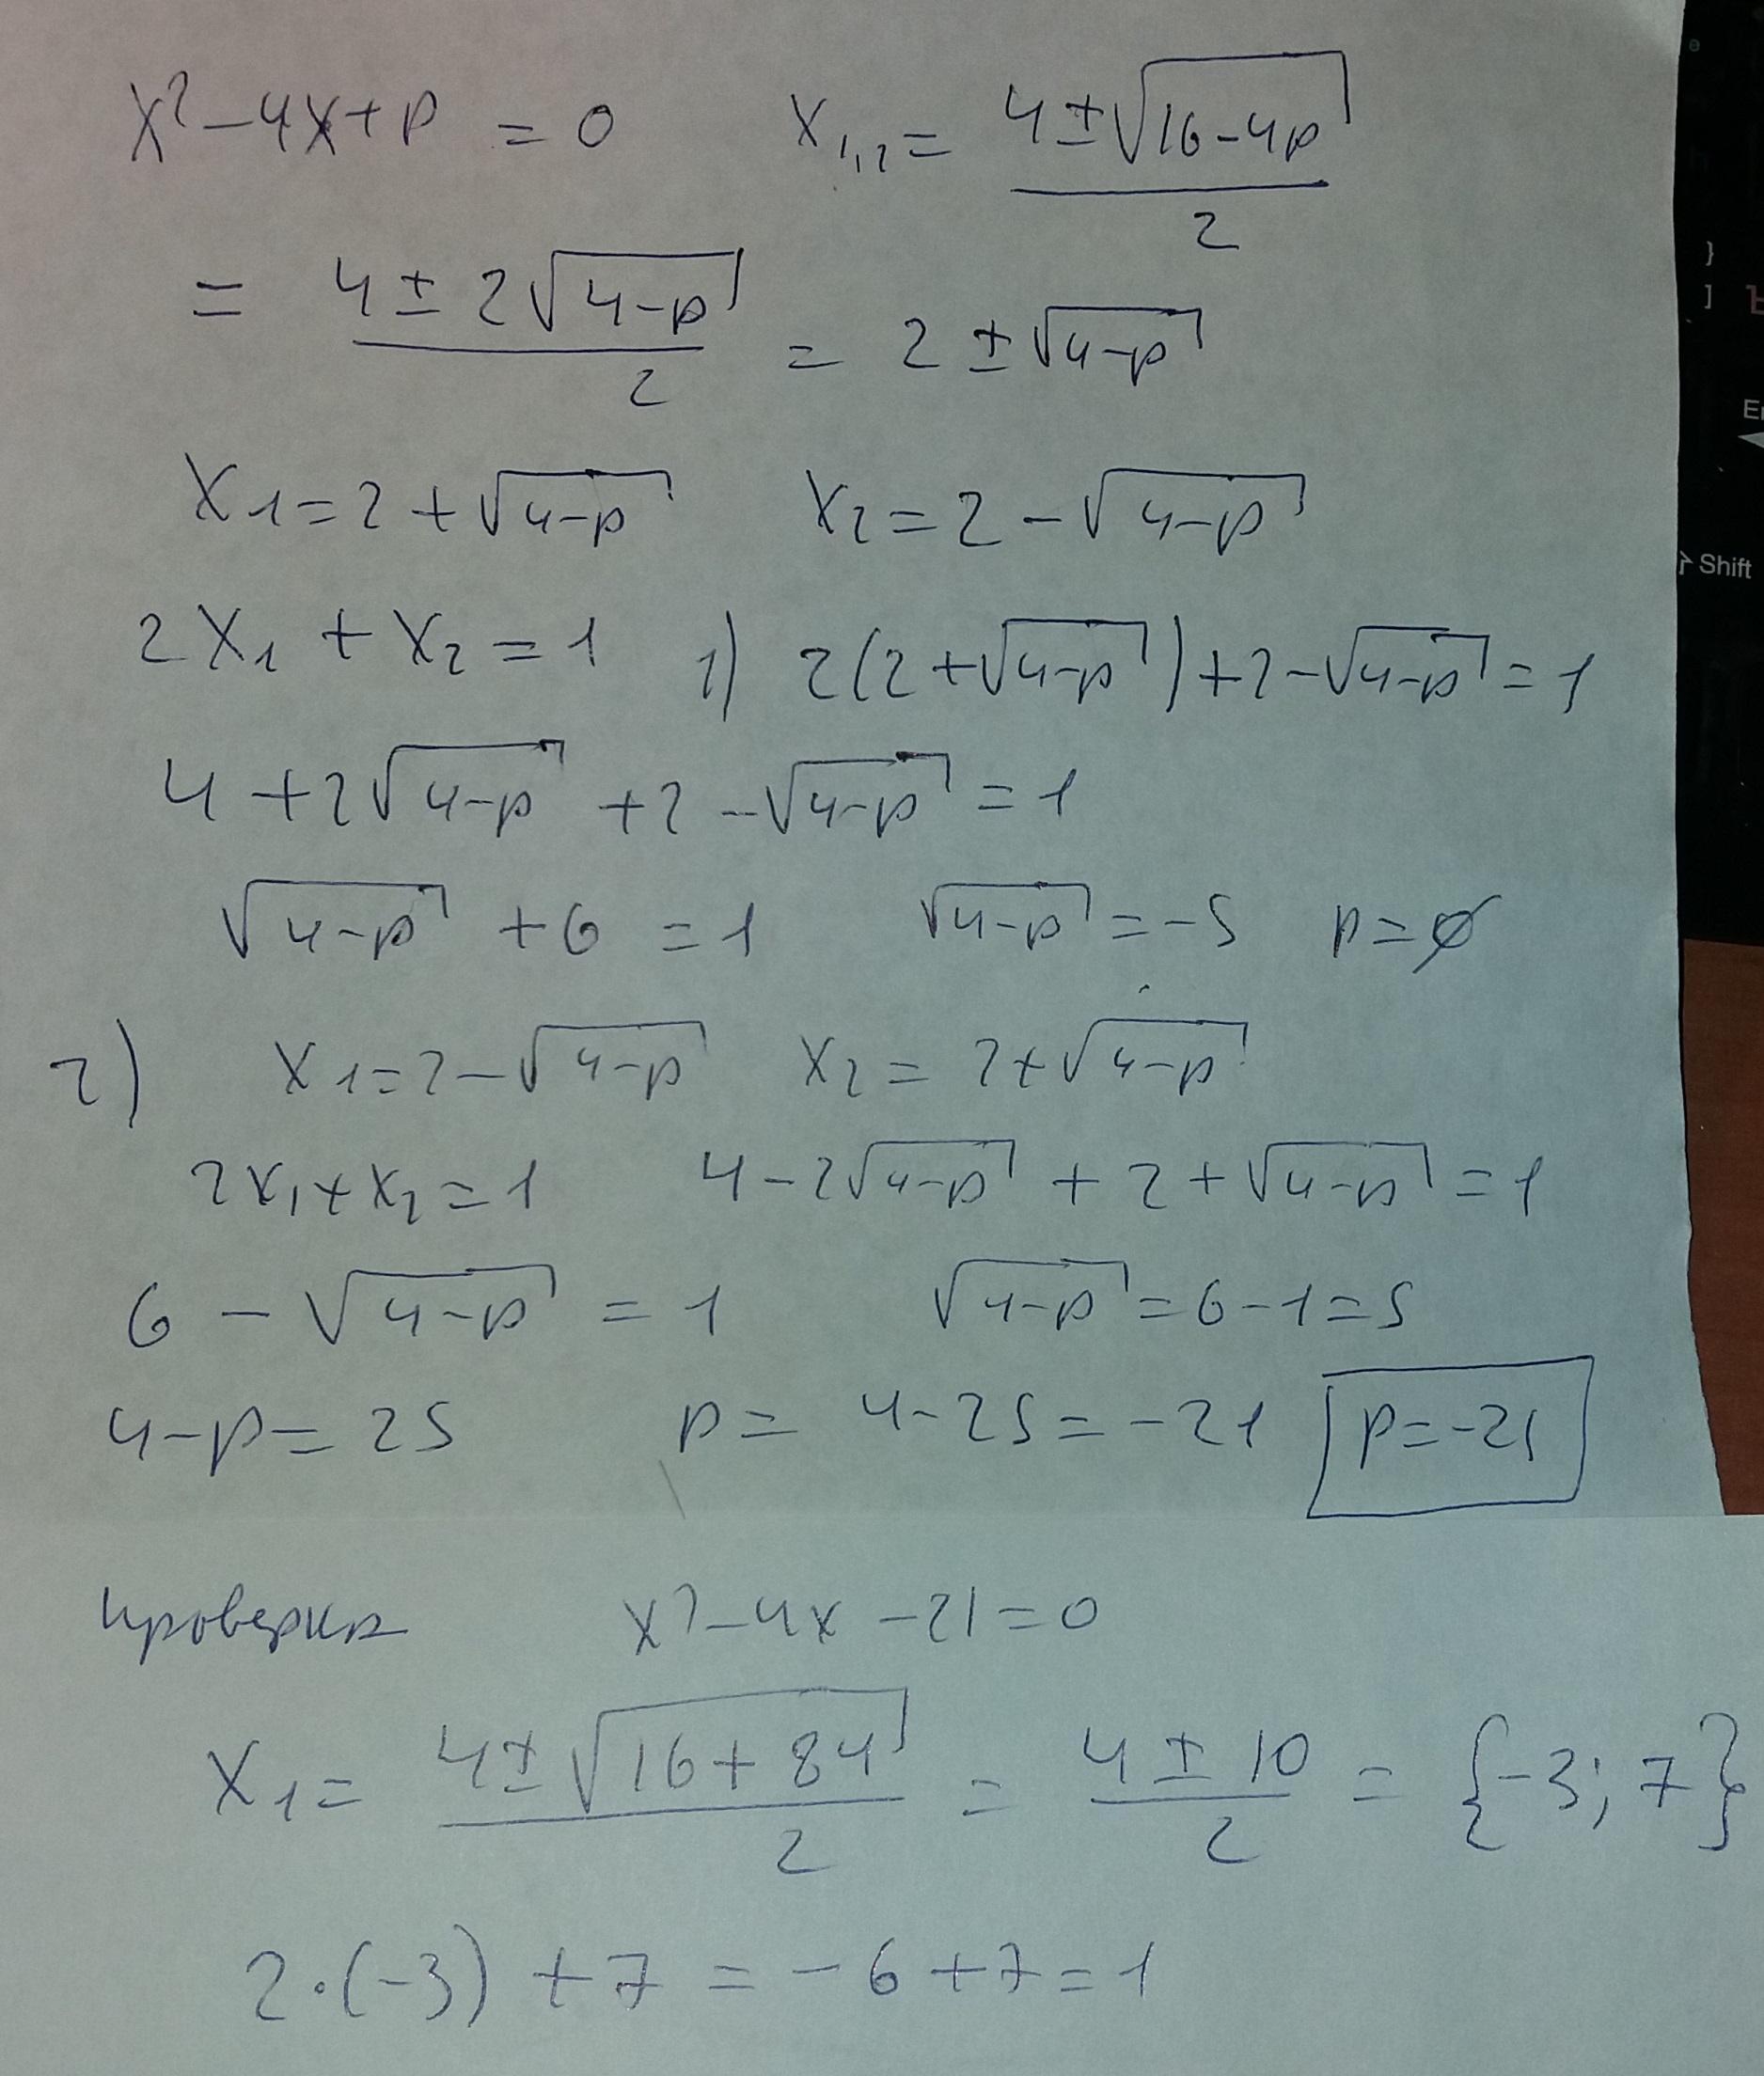 x² - 4x + p = 0    x₁,₂ = (4 ± √(16 - 4p)) / 2
= (4 ± 2√(4-p)) / 2 = 2 ± √(4-p)
x₁ = 2 + √(4-p)    x₂ = 2 - √(4-p)
2x₁ + x₂ = 1    1) 2(2 + √(4-p)) + 2 - √(4-p) = 1
4 + 2√(4-p) + 2 - √(4-p) = 1
√(4-p) + 6 = 1    √(4-p) = -5    p = ∅
2) x₁ = 2 - √(4-p)    x₂ = 2 + √(4-p)
2x₁ + x₂ = 1    4 - 2√(4-p) + 2 + √(4-p) = 1
6 - √(4-p) = 1    √(4-p) = 6 - 1 = 5
4 - p = 25    p = 4 - 25 = -21    p = -21
проверка    x² - 4x - 21 = 0
x₁ = (4 ± √(16 + 84)) / 2 = (4 ± 10) / 2 = {-3; 7}
2·(-3) + 7 = -6 + 7 = 1
}
]
Shift